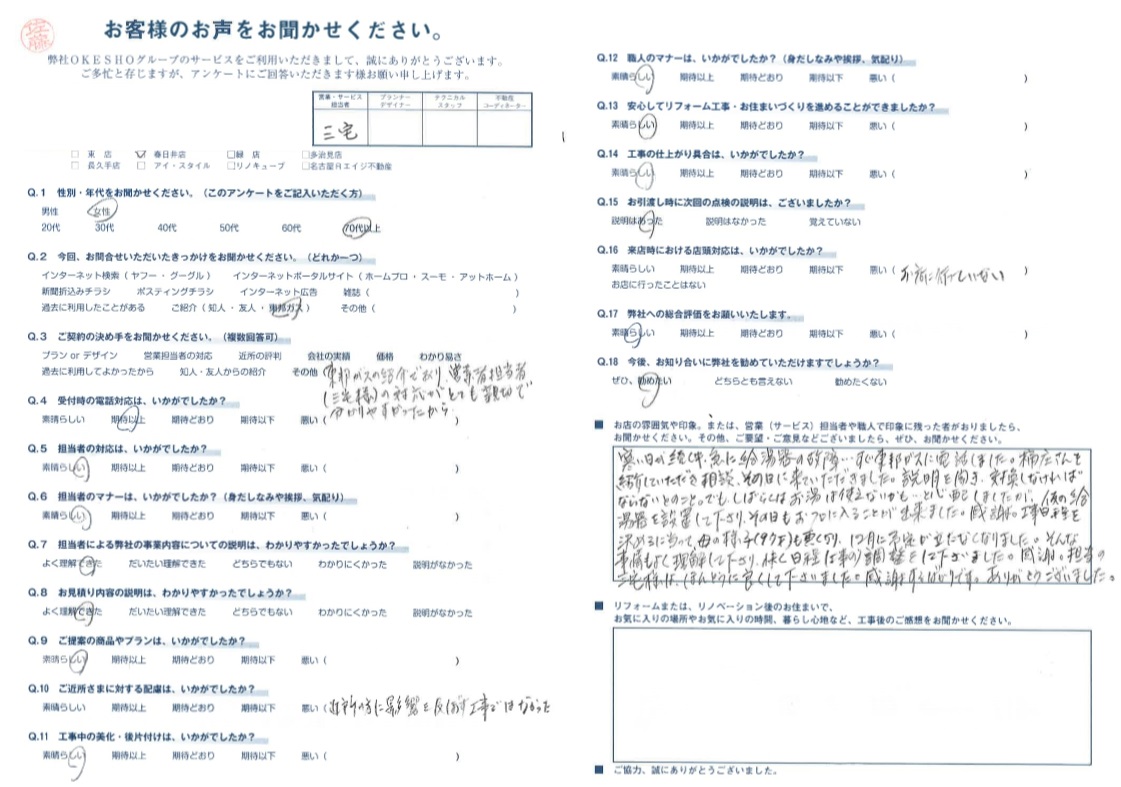 佐藤
お客様のお声をお聞かせください。
弊社OKESHOグループのサービスをご利用いただきまして、誠にありがとうございます。
ご多忙と存じますが、アンケートにご回答いただきます様お願い申し上げます。
営業・サービス担当者 プランナーデザイナー テクニカルスタッフ 不動産コーディネーター
三宅
□ 東店 ☑ 春日井店 □緑店 □多治見店
□ 長久手店 □ アイ・スタイル □リノキューブ □名古屋Rエイジ不動産
Q.1 性別・年代をお聞かせください。（このアンケートをご記入いただく方）
男性 女性
20代 30代 40代 50代 60代 70代以上
Q.2 今回、お問合せいただいたきっかけをお聞かせください。（どれか一つ）
インターネット検索（ヤフー・グーグル） インターネットポータルサイト（ホームプロ・スーモ・アットホーム）
新聞折込みチラシ ポスティングチラシ インターネット広告 雑誌（ ）
過去に利用したことがある ご紹介（知人・友人・東邦ガス） その他（ ）
Q.3 ご契約の決め手をお聞かせください。（複数回答可）
プラン or デザイン 営業担当者の対応 近所の評判 会社の実績 価格 わかり易さ
過去に利用してよかったから 知人・友人からの紹介 その他（東邦ガスの紹介であり、営業者担当者
（三宅様）の対応がとても親切で
分かりやすかったから
Q.4 受付時の電話対応は、いかがでしたか？
素晴らしい 期待以上 期待どおり 期待以下 悪い（
Q.5 担当者の対応は、いかがでしたか？
素晴らしい 期待以上 期待どおり 期待以下 悪い（ ）
Q.6 担当者のマナーは、いかがでしたか？（身だしなみや挨拶、気配り）
素晴らしい 期待以上 期待どおり 期待以下 悪い（ ）
Q.7 担当者による弊社の事業内容についての説明は、わかりやすかったでしょうか？
よく理解できた だいたい理解できた どちらでもない わかりにくかった 説明がなかった
Q.8 お見積り内容の説明は、わかりやすかったでしょうか？
よく理解できた だいたい理解できた どちらでもない わかりにくかった 説明がなかった
Q.9 ご提案の商品やプランは、いかがでしたか？
素晴らしい 期待以上 期待どおり 期待以下 悪い（ ）
Q.10 ご近所さまに対する配慮は、いかがでしたか？
素晴らしい 期待以上 期待どおり 期待以下 悪い（近所の方に影響を及ぼす工事ではなかった
Q.11 工事中の美化・後片付けは、いかがでしたか？
素晴らしい 期待以上 期待どおり 期待以下 悪い（ ）
Q.12 職人のマナーは、いかがでしたか？（身だしなみや挨拶、気配り）
素晴らしい 期待以上 期待どおり 期待以下 悪い（ ）
Q.13 安心してリフォーム工事・お住まいづくりを進めることができましたか？
素晴らしい 期待以上 期待どおり 期待以下 悪い（ ）
Q.14 工事の仕上がり具合は、いかがでしたか？
素晴らしい 期待以上 期待どおり 期待以下 悪い（ ）
Q.15 お引渡し時に次回の点検の説明は、ございましたか？
説明はあった 説明はなかった 覚えていない
Q.16 来店時における店頭対応は、いかがでしたか？
素晴らしい 期待以上 期待どおり 期待以下 悪い（お店に行っていない ）
お店に行ったことはない
Q.17 弊社への総合評価をお願いいたします。
素晴らしい 期待以上 期待どおり 期待以下 悪い（ ）
Q.18 今後、お知り合いに弊社を勧めていただけますでしょうか？
ぜひ、勧めたい どちらとも言えない 勧めたくない
■ お店の雰囲気や印象。または、営業（サービス）担当者や職人で印象に残った者がおりましたら、
お聞かせください。その他、ご要望・ご意見などございましたら、ぜひ、お聞かせください。
寒い日が続く中、急に給湯器の故障…すぐ東邦ガスに電話しました。桶庄さんを
紹介していただき相談、その日に来ていただきました。説明を聞き、交換しなければ
ならないとのこと。でもしばらくはお湯は使えないかも…と心配しましたが、仮の給
湯器を設置して下さり、その日もおフロに入ることが出来ました。感謝。工事日程を
決めるに当って、母の様子(97才)も悪くなり、12月に予定が立たなくなりました。そんな
事情もよく理解して下さり、快く日程は事の調整をして下さいました。感謝。担当の
三宅様は、ほんとうに良くして下さいました。感謝するばかりです。ありがとうございました。
■ リフォームまたは、リノベーション後のお住まいで、
お気に入りの場所やお気に入りの時間、暮らし心地など、工事後のご感想をお聞かせください。
■ ご協力、誠にありがとうございました。